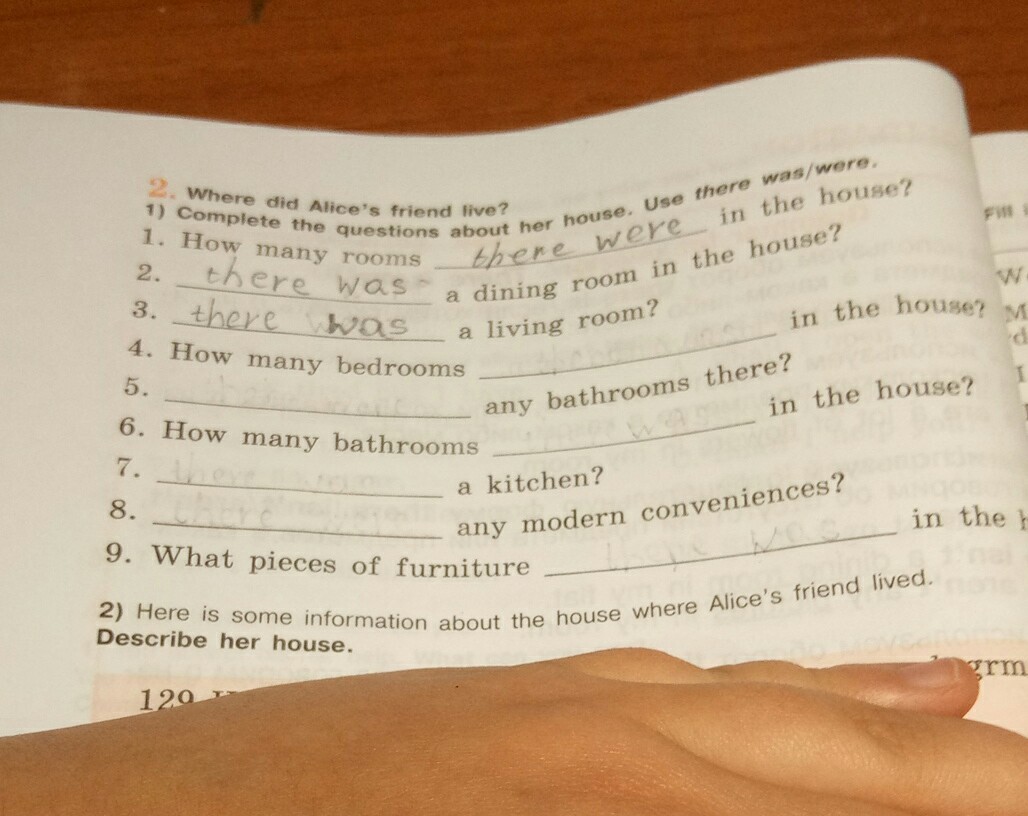 2. Where did Alice's friend live?
1) Complete the questions about her house. Use there was/were.
1. How many rooms there were in the house?
2. there was a dining room in the house?
3. there was a living room?
4. How many bedrooms in the house?
5. any bathrooms there?
6. How many bathrooms was in the house?
7. there a kitchen?
8. there any modern conveniences?
9. What pieces of furniture was in the
2) Here is some information about the house where Alice's friend lived.
Describe her house.
129
Fill